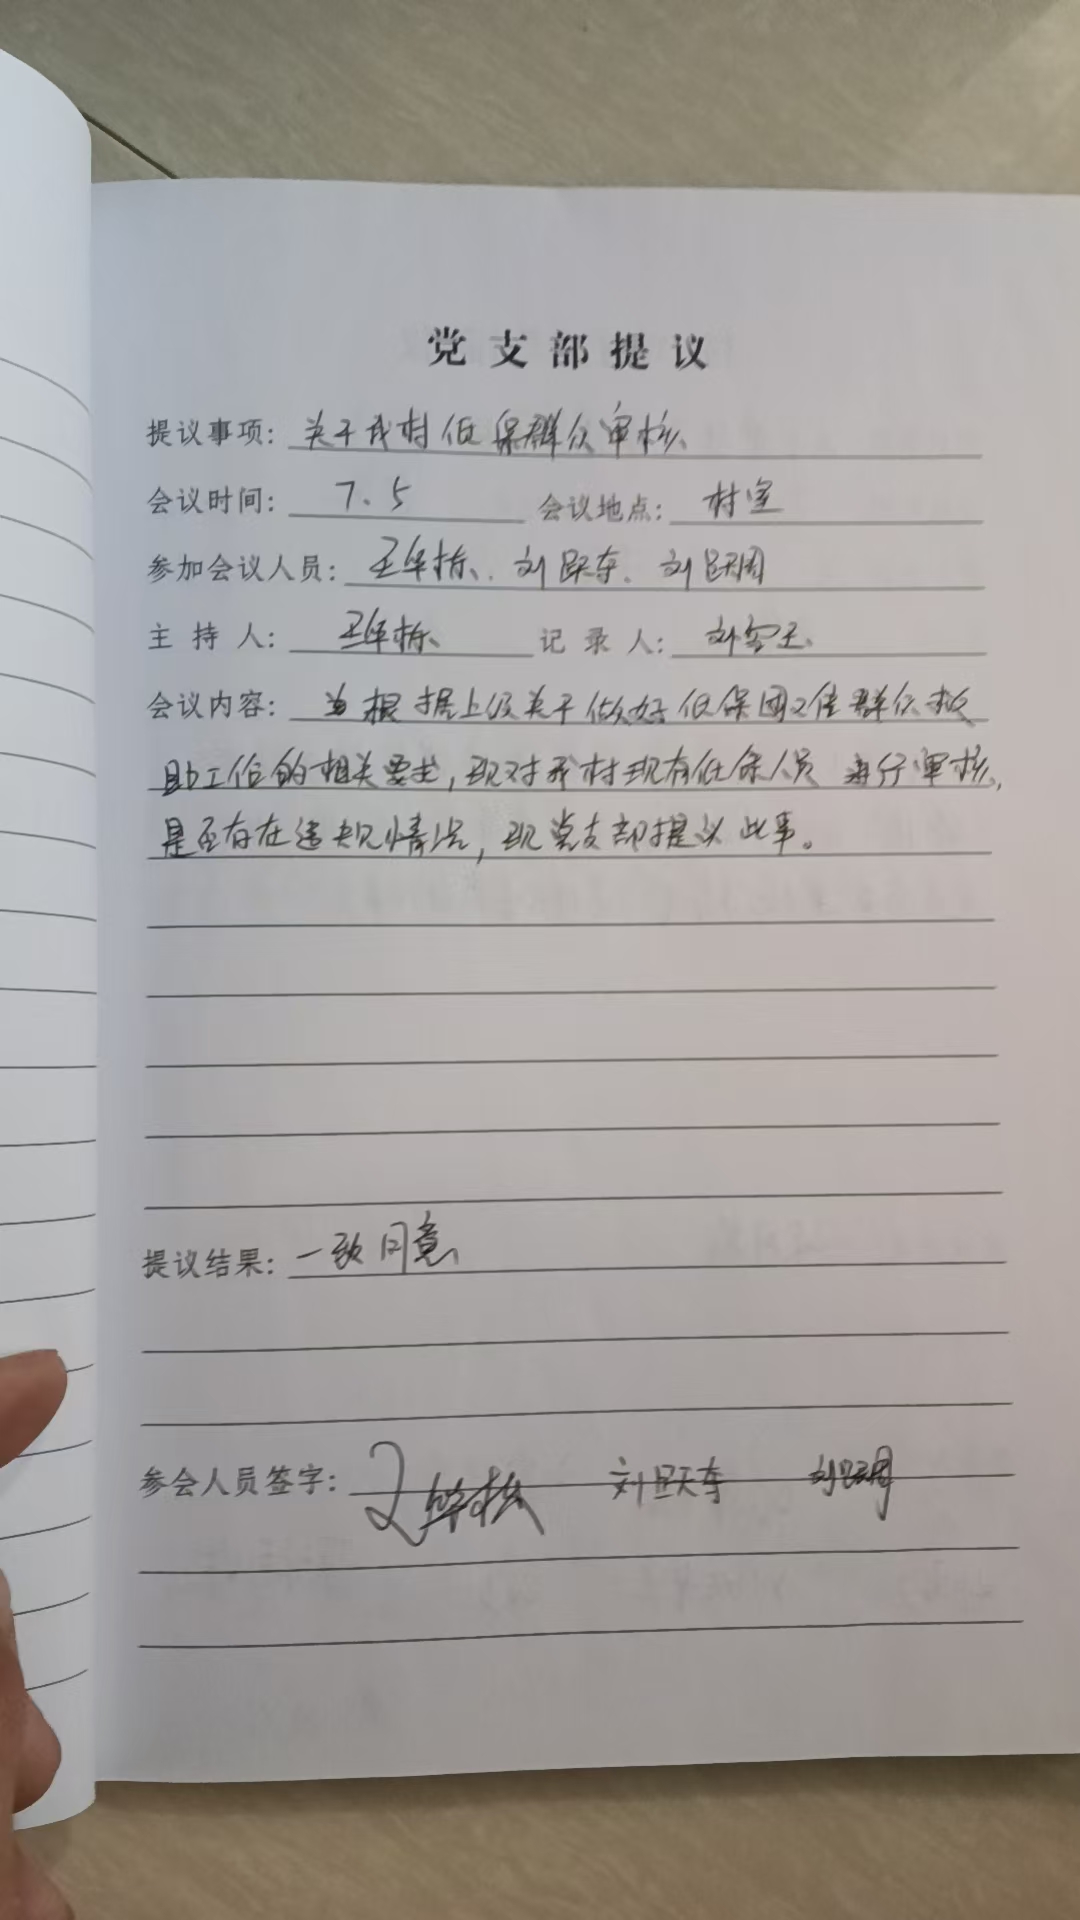 党支部提议
提议事项: 关于我村低保群众审核
会议时间: 7.5 会议地点: 村室
参加会议人员: 王华栋、刘跃东、刘跃周
主持人: 王华栋 记录人: 刘
会议内容: 根据上级关于做好低保困群众救
助工作的相关要求,现对我村现有低保人员进行审核,
是否存在违规情况,现党支部提议此事。
提议结果: 一致同意
参会人员签字: 王华栋 刘跃东 刘跃周